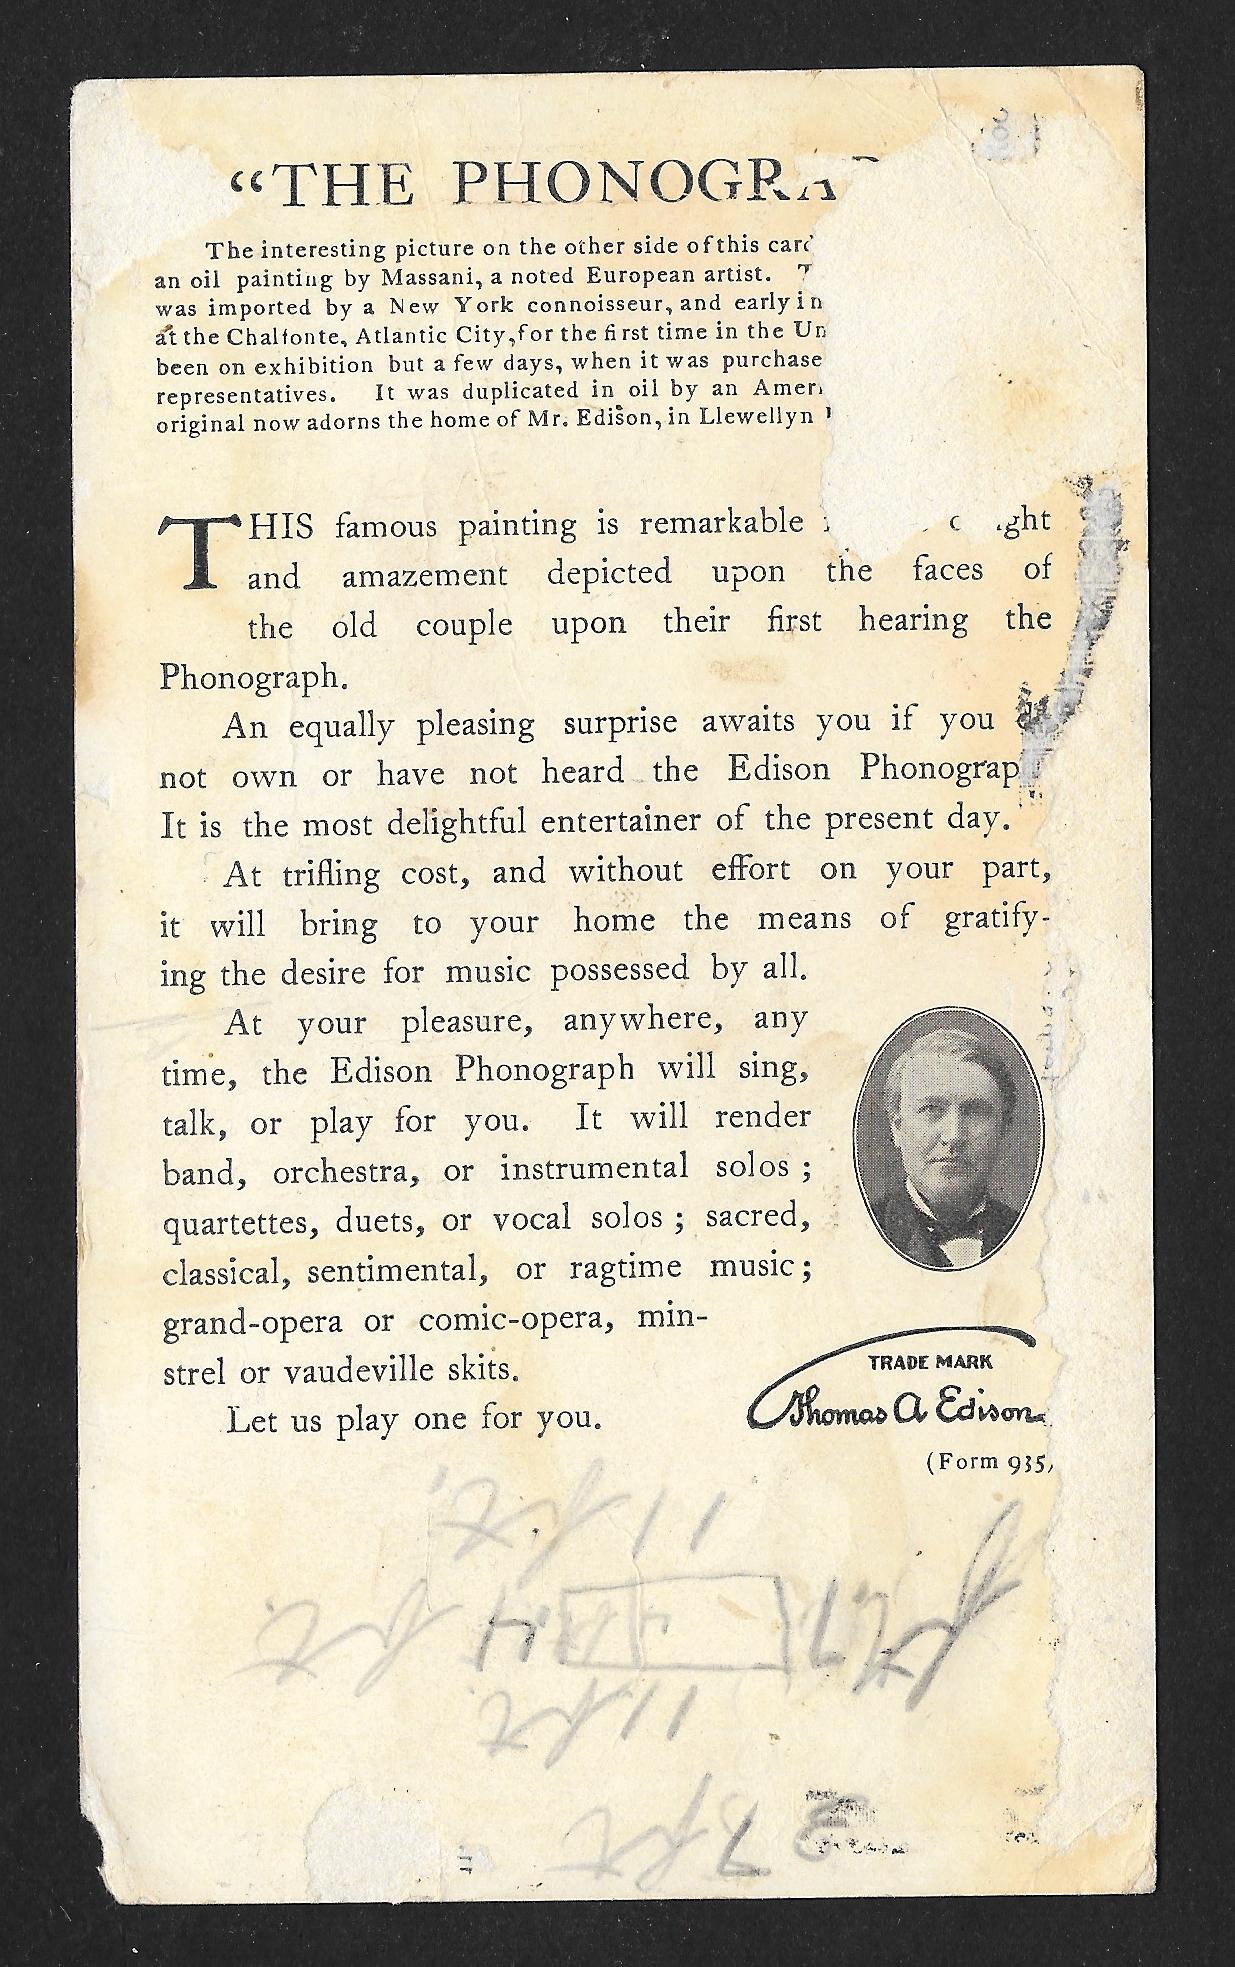 “THE PHONOGRA
The interesting picture on the other side of this card
an oil painting by Massani, a noted European artist.
was imported by a New York connoisseur, and early in
at the Chalfonte, Atlantic City, for the first time in the Un
been on exhibition but a few days, when it was purchase
representatives. It was duplicated in oil by an Ameri
original now adorns the home of Mr. Edison, in Llewellyn
THIS famous painting is remarkable ght
and amazement depicted upon the faces of
the old couple upon their first hearing the
Phonograph.
An equally pleasing surprise awaits you if you
not own or have not heard the Edison Phonograp
It is the most delightful entertainer of the present day.
At trifling cost, and without effort on your part,
it will bring to your home the means of gratify-
ing the desire for music possessed by all.
At your pleasure, anywhere, any
time, the Edison Phonograph will sing,
talk, or play for you. It will render
band, orchestra, or instrumental solos ;
quartettes, duets, or vocal solos ; sacred,
classical, sentimental, or ragtime music ;
grand-opera or comic-opera, min-
strel or vaudeville skits.
Let us play one for you.
TRADE MARK
Thomas A Edison
(Form 935)